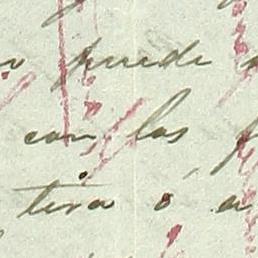 puede
con las
tira ó a